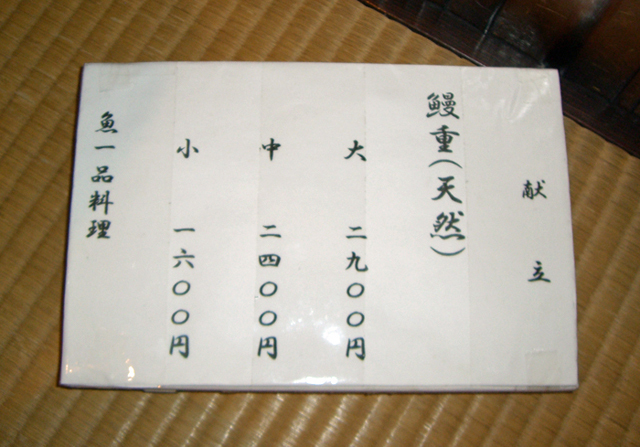 献立
鰻重(天然)
大 二九〇〇円
中 二四〇〇円
小 一六〇〇円
魚一品料理